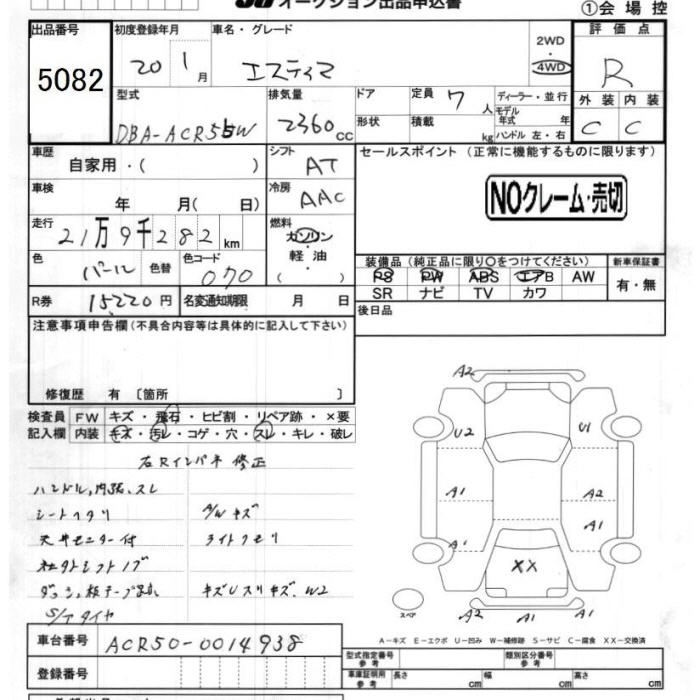 オークション出品申込書
①会場控
出品番号 5082
初度登録年月 20 1月
車名・グレード エスティマ
2WD・4WD
評価点 R
型式 DBA-ACR55W
排気量 2360 cc
ドア 形状
定員 7人 積載 kg
ディーラー・並行
モデル年式 年
ハンドル 左・右
外装 C 内装 C
車歴 自家用・( )
シフト AT
セールスポイント (正常に機能するものに限ります)
NOクレーム・売切
車検 年 月( 日)
冷房 AAC
走行 21万9千282km
燃料 ガソリン・軽油
色 パール 色替 色コード 070
装備品(純正品に限り○をつけてください)
PS PW ABS エアB AW
SR ナビ TV カワ
新車保証書 有・無
R券 15220円 名変通知期限 月 日
後日品
注意事項申告欄(不具合内容等は具体的に記入して下さい)
修復歴 有〔箇所 〕
検査員記入欄
FW キズ・飛石・ヒビ割・リペア跡・×要
内装 キズ・汚レ・コゲ・穴・スレ・キレ・破レ
右Rインパネ修正
ハンドル,内張,スレ
シートヘタリ A/Wキズ
天井モニター付 ライトクモリ
社外シフトノブ
S/Tタイヤ
A2
U2 U1
A1 A2
A1 A1
XX
スペア A2 A1 A2
A-キズ E-エクボ U-凹み W-補修跡 S-サビ C-腐食 XX-交換済
車台番号 ACR50-0014938
登録番号
型式指定番号 参考 類別区分番号 参考
車庫証明用 参考 長さ cm 幅 cm 高さ cm